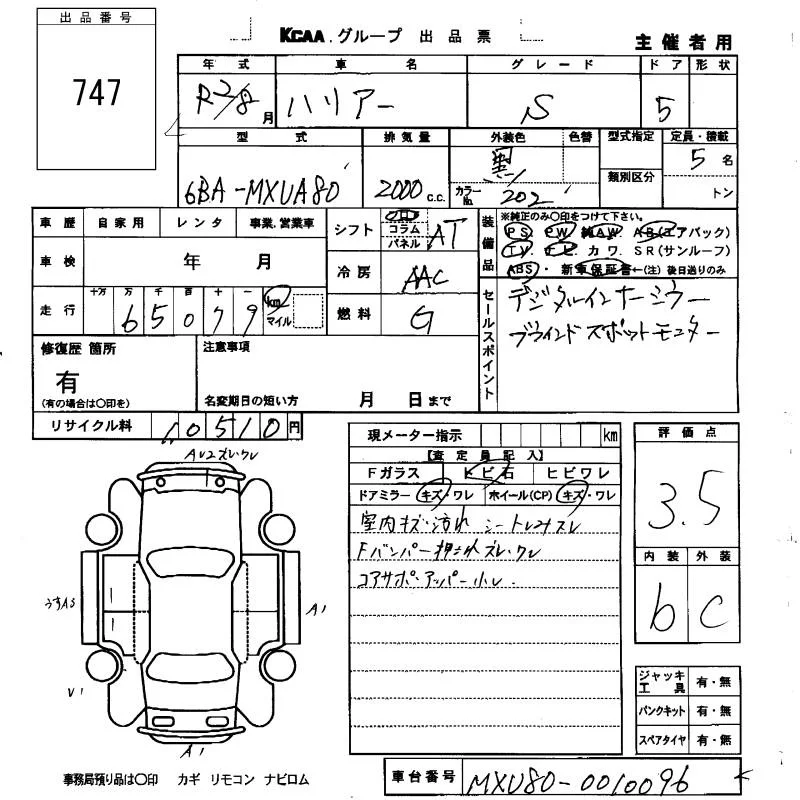 出品番号
747
KCAA.グループ 出品票
主催者用
年式 車名 グレード ドア 形状
R2/8月 ハリアー S 5
型式 排気量 外装色 色替 型式指定 定員・積載
6BA-MXUA80 2000 C.C. 黒 カラーNo. 202 類別区分 5名
トン
車歴 自家用 レンタ 事業.営業車
車検 年 月
走行 十万 万 千 百 十 一
65079 km マイル
シフト フロ コラム パネル AT
冷房 AAC
燃料 G
装備品 ※純正のみ〇印をつけて下さい。
PS PW 純AW AB(エアバック)
TV ナビ カワ SR(サンルーフ)
ABS・新車保証書←(注)後日送りのみ
セールスポイント
デジタルインナーミラー
ブラインドスポットモニター
修復歴 箇所
有
(有の場合は〇印を)
注意事項
名変期日の短い方 月 日まで
リサイクル料 10510円
現メーター指示 km
【査定員記入】
Fガラス トビ石 ヒビワレ
ドアミラー キズ・ワレ ホイール(CP) キズ・ワレ
室内キズ・汚れ シートしみスレ
Fバンパー押され ズレ・ワレ
コアサポ・アッパー小
評価点
3.5
内装 外装
b C
AU2ズレ・ワレ
うすA3
A1
V1
A1
ジャッキ工具 有・無
パンクキット 有・無
スペアタイヤ 有・無
事務局預り品は〇印 カギ リモコン ナビロム
車台番号 MXUA80-0010096